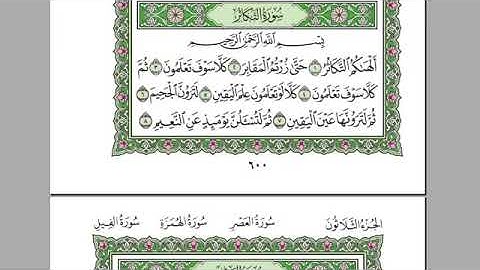 سُورَةُ التَّكَاثُرِ
بِسْمِ اللَّهِ الرَّحْمَٰنِ الرَّحِيمِ
أَلْهَىٰكُمُ التَّكَاثُرُ ١ حَتَّىٰ زُرْتُمُ الْمَقَابِرَ ٢ كَلَّا سَوْفَ تَعْلَمُونَ ٣ ثُمَّ
كَلَّا سَوْفَ تَعْلَمُونَ ٤ كَلَّا لَوْ تَعْلَمُونَ عِلْمَ الْيَقِينِ ٥ لَتَرَوُنَّ الْجَحِيمَ ٦
ثُمَّ لَتَرَوُنَّهَا عَيْنَ الْيَقِينِ ٧ ثُمَّ لَتُسْـَٔلُنَّ يَوْمَئِذٍ عَنِ النَّعِيمِ ٨
٦٠٠
الجُزْءُ الثَّلَاثُونَ سُورَةُ العَصْرِ سُورَةُ الهُمَزَةِ سُورَةُ الفِيلِ